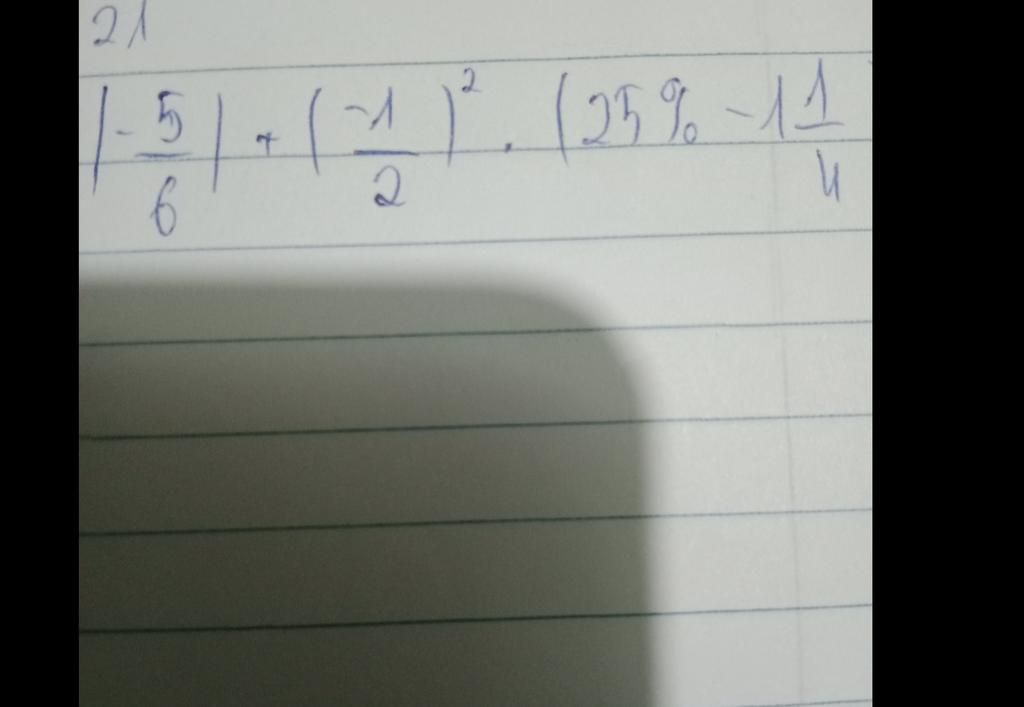 21
|-5/6| + (-1/2)² . (25% - 1 1/4